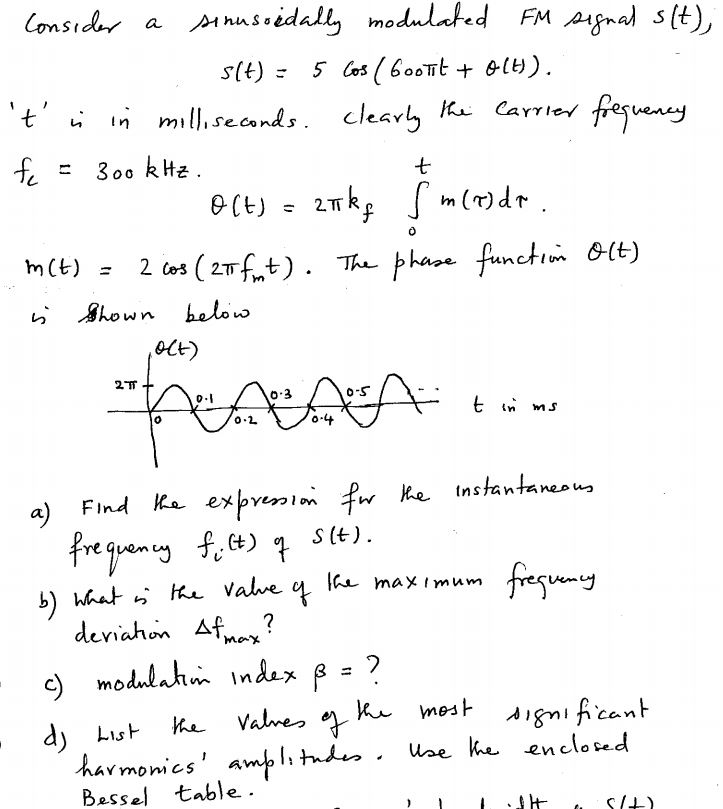 Consider a sinusoidally modulated FM signal s(t),
s(t) = 5 cos(600πt + θ(t)).
't' is in milliseconds. clearly the carrier frequency
fc = 300 kHz.
θ(t) = 2πkf ∫₀ᵗ m(τ)dτ.
m(t) = 2 cos(2πfmt). The phase function θ(t)
is shown below
θ(t)
2π
0 0.1 0.2 0.3 0.4 0.5 -- t in ms
a) Find the expression for the instantaneous
frequency fi(t) of s(t).
b) What is the value of the maximum frequency
deviation Δfmax?
c) modulation index β = ?
d) List the values of the most significant
harmonics' amplitudes. Use the enclosed
Bessel table.
s(t)